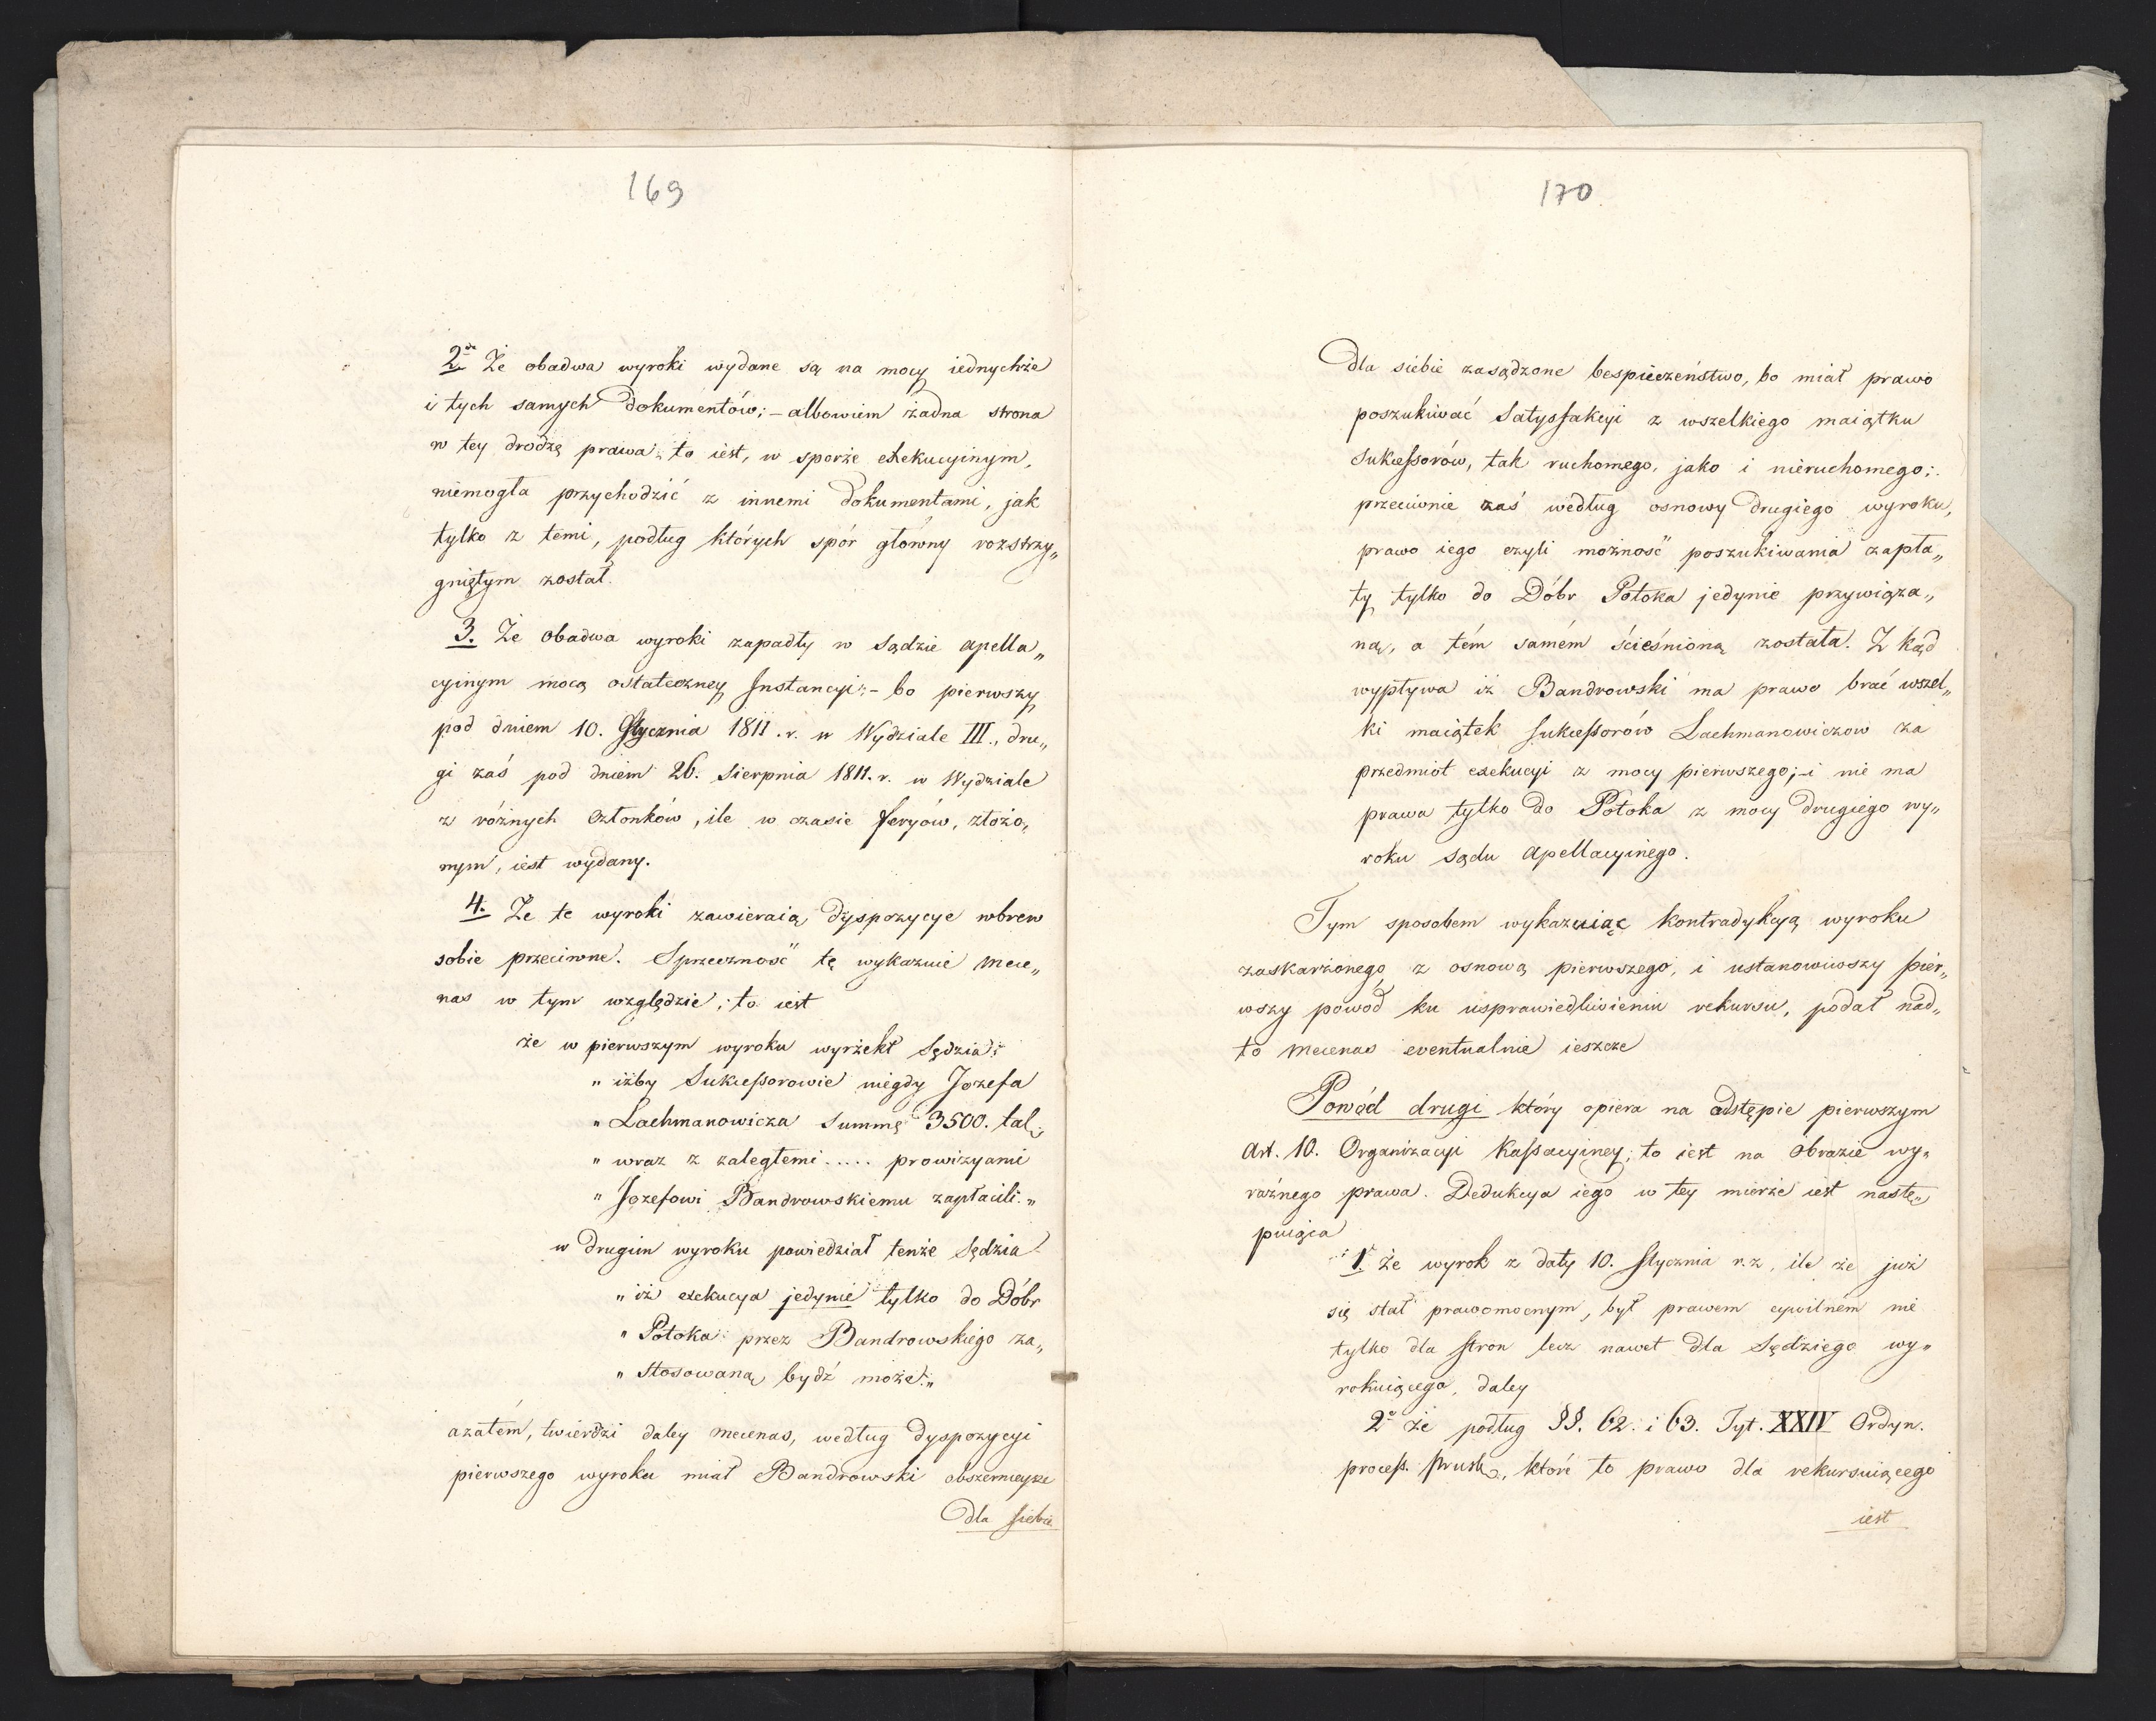 169
2do Że obadwa wyroki wydane są na mocy iednychże
i tych samych dokumentów; – albowiem żadna strona
w tey drodze prawa; to iest, w sporże exekucyinym,
niemogła przychodzić z innemi dokumentami, jak
tylko z temi, podług których spór główny rozstrzy„
gniętym został.
3. Że obadwa wyroki zapadły w Sądzie apella„
cyinym mocą ostateczney Instancyi; – bo pierwszy
pod dniem 10. Stycznia 1811. r. w Wydziale III., dru„
gi zaś pod dniem 26. Sierpnia 1811. r. w Wydziale
z różnych Członków, ile w czasie feryów, złożo„
nym, iest wydany.
4. Że te wyroki zawieraią dyspozycye wbrew
sobie przeciwne. Sprzeczność tę wykazuie Mece„
nas w tym względzie; to iest
że w pierwszym wyroku wyrzekł Sędzia:
„ iżby Sukcessorowie niegdy Jozefa
„ Lachmanowicza Summę 3500. tal.
„ wraz z zaległemi ..... prowizyami
„ Jozefowi Bandrowskiemu zapłacili.„
w drugim wyroku powiedział tenże Sędzia
„ iż exekucya jedynie tylko do Dóbr
„ Potoka przez Bandrowskiego za„
„ stosowaną bydź może.„
azatém, twierdzi daley Mecenas, według dyspozycyi
pierwszego wyroku miał Bandrowski obszernieysze
dla siebie
170.
dla siebie zasądzone bespieczeństwo, bo miał prawo
poszukiwać Satysfakcyi z wszelkiego maiątku
Sukcessorów, tak ruchomego, jako i nieruchomego;
przeciwnie zaś według osnowy drugiego wyroku,
prawo iego czyli możność poszukiwania zapła„
ty tylko do Dóbr Potoka jedynie przywiąza„
ną, a tém samém ścieśnioną została. Z kąd
wypływa iż Bandrowski ma prawo brać wszel„
ki maiątek Sukcessorów Lachmanowiczow za
przedmiot exekucyi z mocy pierwszego; – i nie ma
prawa tylko do Potoka z mocy drugiego wy„
roku Sądu Apellacyinego.
Tym sposobem wykazuiąc kontradykcyą wyroku
zaskarżonego z osnową pierwszego, i ustanowiwszy pier„
wszy powód ku usprawiedliwieniu rekursu, podał nad„
to Mecenas eventualnie ieszcze
Powód drugi który opiera na odstępie pierwszym
Art. 10. Organizacyi Kassacyiney; to iest na obrazie wy„
raźnego prawa. Dedukcya iego w tey mierze iest nastę„
puiąca
1. Że wyrok z daty 10. Stycznia r. z, ile że już
się stał prawomocnym, był prawem cywilném nie
tylko dla stron lecz nawet dla Sędziego wy„
rokuiącego, daley
2o że podług §§. 62. i 63. Tyt. XXIV Ordyn.
process. Prusk., które to prawo dla rekursuiącego
iest